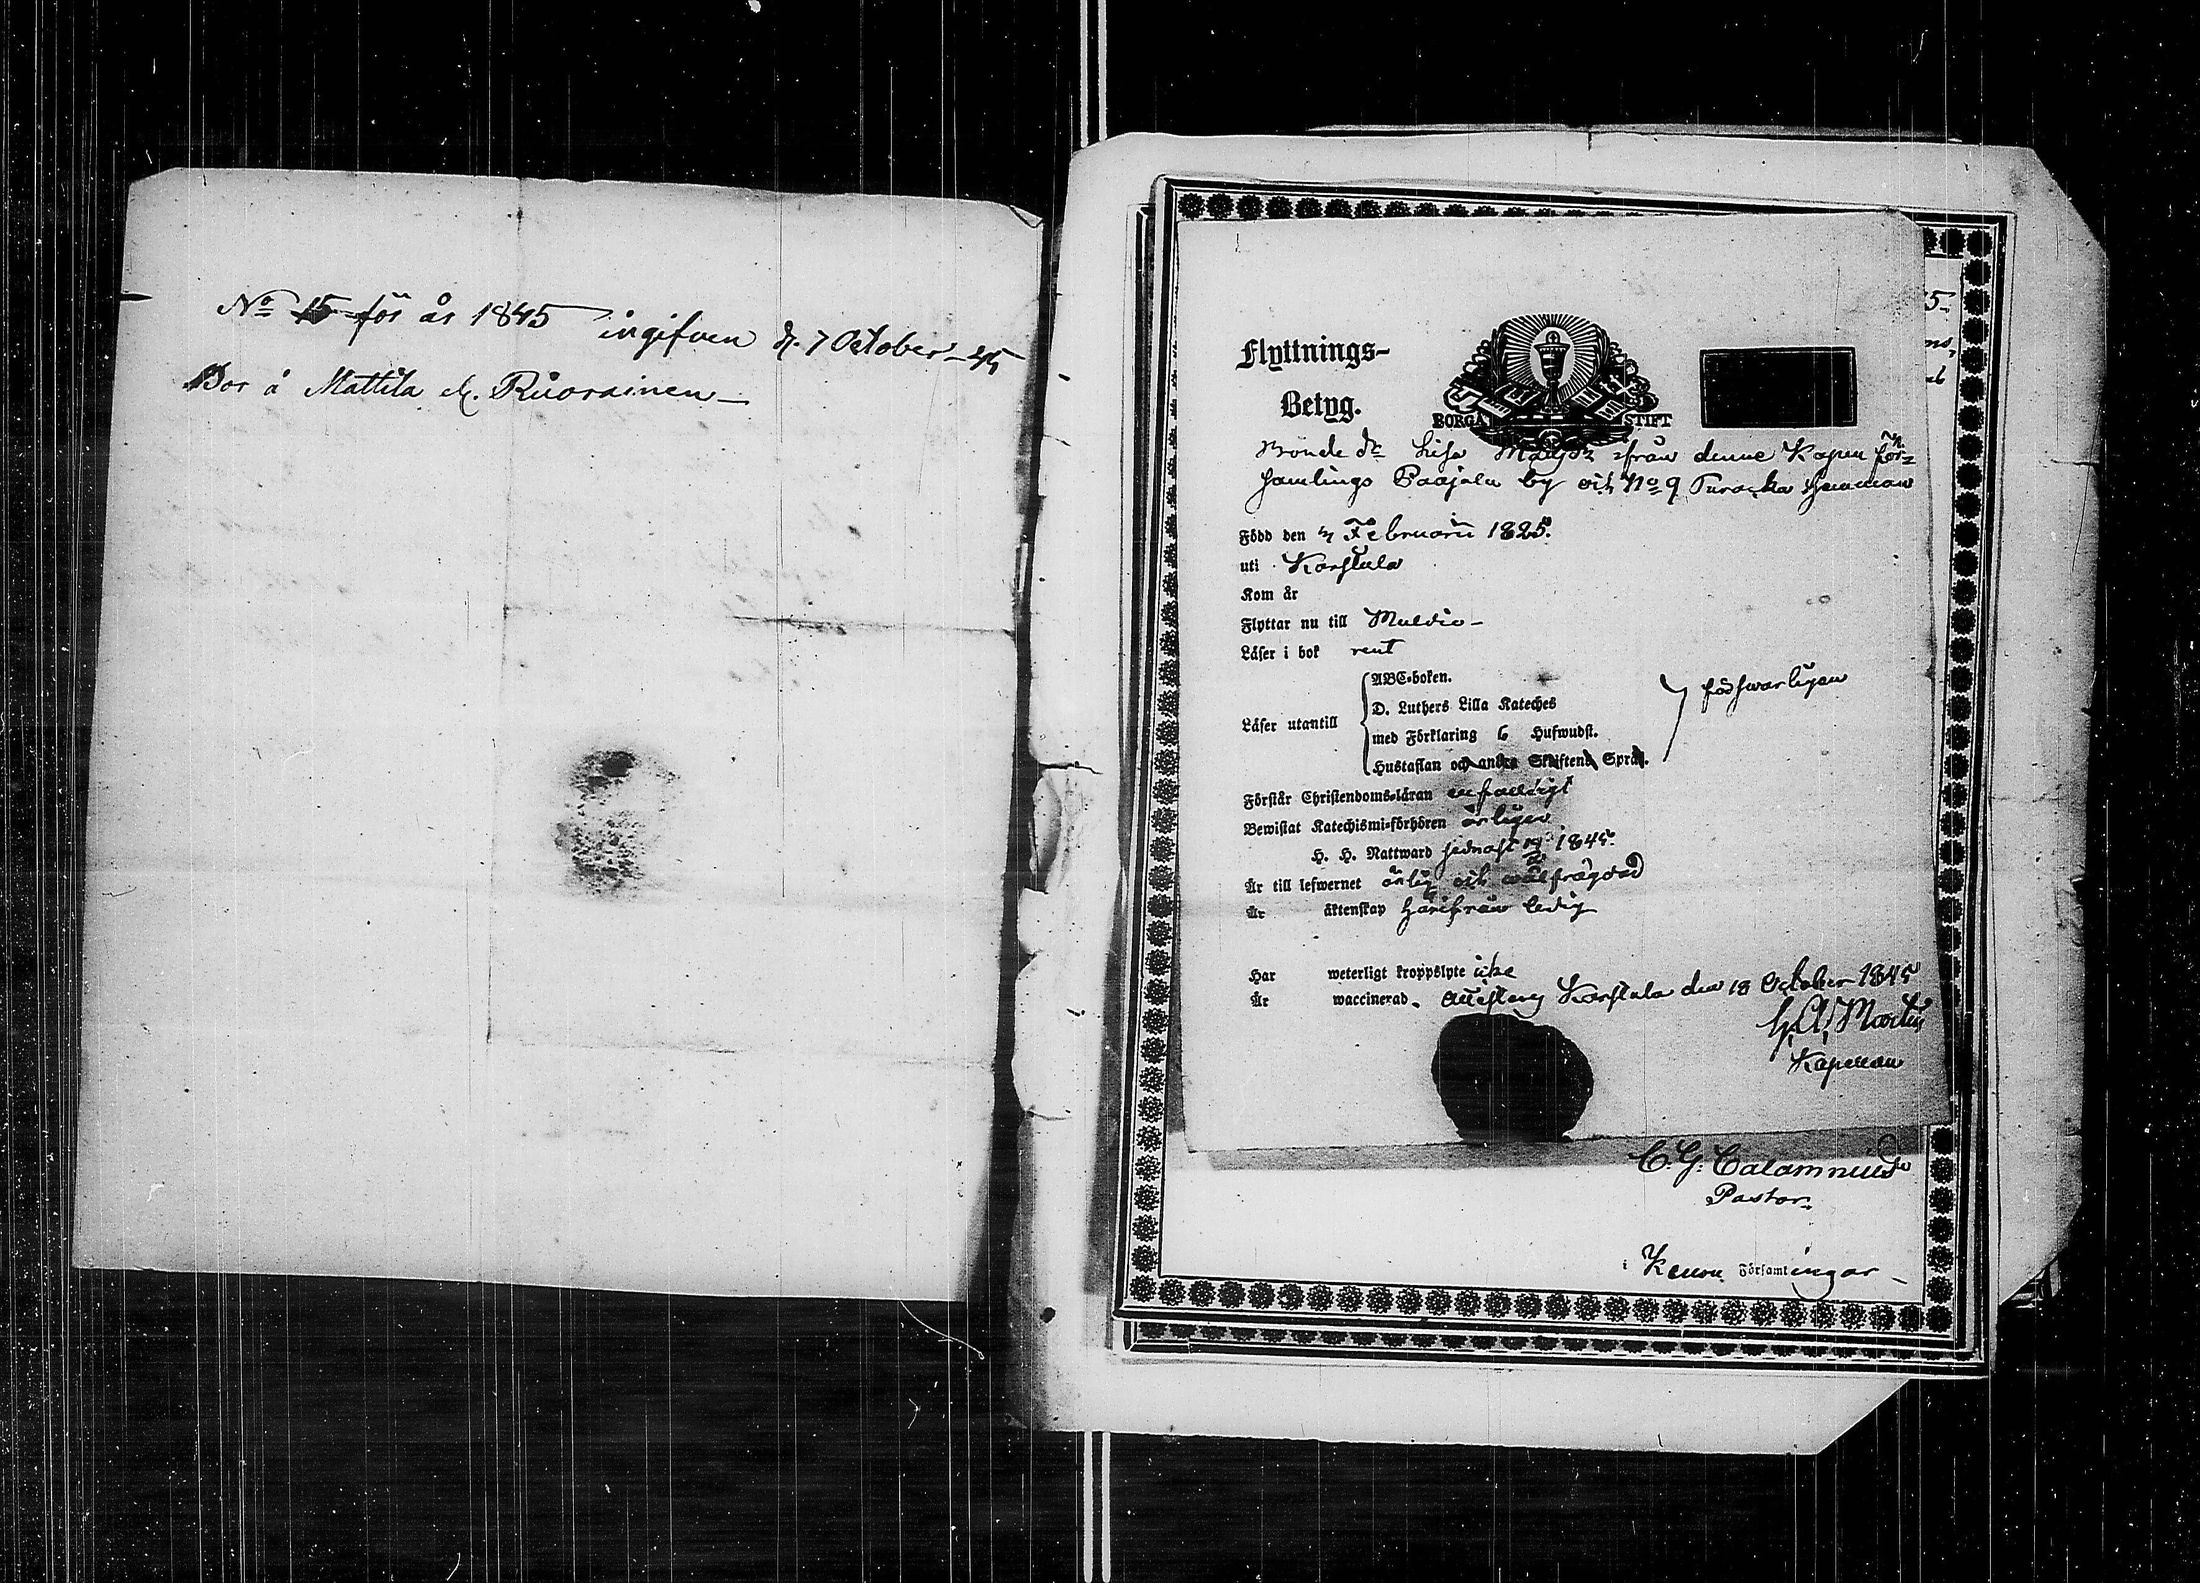 No 15 för år 1845 ingifven d. 7 October - 45
Bor å Mattila el. Ruorainen
Flyttnings-
Betyg.
BORGÅ STIFT
Bonde dr Lisa från denne Kapell för=
samlings Paajala by och No 9 hemman
Född den 4 Februarii 1825.
uti Karstula
Kom år
Flyttar nu till Muldia
Läser i bok rent
Läser utantill
ABC-boken.
D. Luthers Lilla Kateches
med Förklaring 6 Hufwudst.
Hustaflan och andra Skriftens Språk.
försvarligen
Förstår Christendoms-läran enfaldigt
Bewistat Katechismi-förhören årligen
H. H. Nattward sednast 1845.
Är till lefwernet ärlig och wälfrägdad
Är äktenskap härifrån ledig
Har weterligt kroppslyte icke
Är waccinerad. Attesterar Karstula den 18 October 1845
Martin
Kapellan
C. G. Calamnius
Pastor
i Kemou Församlingar